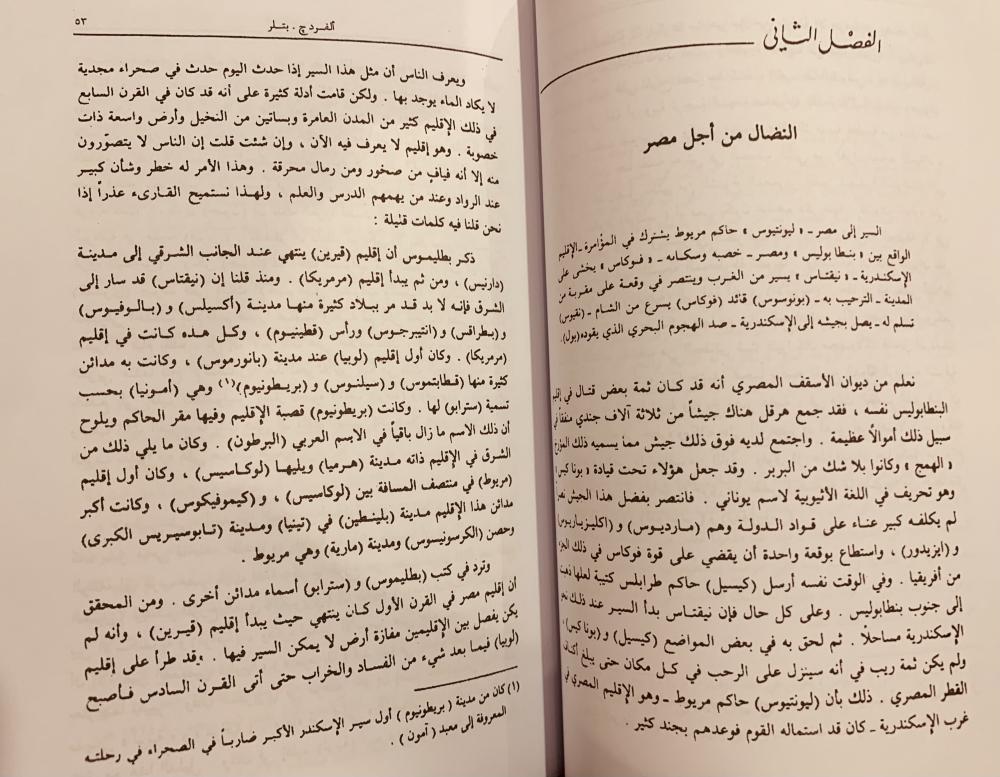 الفصل الثاني
النضال من أجل مصر
السير إلى مصر ـ « ليونتيوس » حاكم مريوط يشترك في المؤامرة ـ الإقليم
الواقع بين « بنطابوليس » ومصر ـ خصبه وسكانه ـ « فوكاس » يخشى على
الإسكندرية ـ « نيقتاس » يسير من الغرب وينتصر في وقعة على مقربة من
المدينة ـ الترحيب به ـ (بونوسوس) قائد (فوكاس) يسرع من الشام ـ (نقيوس)
تسلم له ـ يصل بجيشه إلى الإسكندرية ـ صد الهجوم البحري الذي يقوده (بول).
نعلم من ديوان الأسقف المصري أنه قد كان ثمة بعض قتال في إقليم
البنطابوليس نفسه ، فقد جمع هرقل هناك جيشاً من ثلاثة آلاف جندي منفقاً في
سبيل ذلك أموالاً عظيمة . واجتمع لديه فوق ذلك جيش مما يسميه ذلك المؤرخ
« الهمج » وكانوا بلا شك من البربر . وقد جعل هؤلاء تحت قيادة (بوناكيس)
وهو تحريف في اللغة الأثيوبية لاسم يوناني . فانتصر بفضل هذا الجيش نصراً
لم يكلفه كبير عناء على قواد الدولة وهم (مارديوس) و (اكليزياريوس)
و (ايزيدور) ، واستطاع بوقعة واحدة أن يقضي على قوة فوكاس في ذلك الجزء
من أفريقيا . وفي الوقت نفسه أرسل (كيسيل) حاكم طرابلس كتيبة لعلها ذهبت
إلى جنوب بنطابوليس . وعلى كل حال فإن نيقتاس بدأ السير عند ذلك نحو
الإسكندرية مساحلاً . ثم لحق به في بعض المواضع (كيسيل) و (بوناكيس) ،
ولم يكن ثمة ريب في أنه سينزل على الرحب في كل مكان حتى يبلغ أكناف
القطر المصري . ذلك بأن (ليونتيوس) حاكم مريوط ـ وهو الإقليم المصري في
غرب الإسكندرية ـ كان قد استماله القوم فوعدهم بجند كثير .
ألفرد ج . بتلر
٥٣
ويعرف الناس أن مثل هذا السير إذا حدث اليوم حدث في صحراء مجدية
لا يكاد الماء يوجد بها . ولكن قامت أدلة كثيرة على أنه قد كان في القرن السابع
في ذلك الإقليم كثير من المدن العامرة وبساتين من النخيل وأرض واسعة ذات
خصوبة . وهو إقليم لا يعرف فيه الآن ، وإن شئت قلت إن الناس لا يتصوّرون
منه إلا أنه فيافٍ من صخور ومن رمال محرقة . وهذا الأمر له خطر وشأن كبير
عند الرواد وعند من يهمهم الدرس والعلم ، ولهذا نستميح القارىء عذراً إذا
نحن قلنا فيه كلمات قليلة :
ذكر بطليموس أن إقليم (قيرين) ينتهي عند الجانب الشرقي إلى مدينة
(دارنيس) ، ومن ثم يبدأ إقليم (مرمريكا) . ومنذ قلنا إن (نيقتاس) قد سار إلى
الشرق فإنه لا بد قد مر ببلاد كثيرة منها مدينة (أكسيلس) و (بالوفيوس)
و (بطراقس) و (انتيبرجوس) ورأس (قطينيوم) ، وكل هذه كانت في إقليم
(مرمريكا) . وكان أول إقليم (لوبيا) عند مدينة (بانورموس) ، وكانت به مدائن
كثيرة منها (قطابتموس) و (سيلنوس) و (بريطونيوم)(١) وهي (أمونيا) بحسب
تسمية (سترابو) لها . وكانت (بريطونيوم) قصبة الإقليم وفيها مقر الحاكم ويلوح
أن ذلك الاسم ما زال باقياً في الاسم العربي (البرطون) . وكان ما يلي ذلك من
الشرق في الإقليم ذاته مدينة (هرميا) ويليها (لوكاسيس) ، وكان أول إقليم
(مريوط) في منتصف المسافة بين (لوكاسيس) ، و (كيموفيكوس) ، وكانت أكبر
مدائن هذا الإقليم مدينة (بلينطين) في (تينيا) ومدينة (تابوسيريس الكبرى)
وحصن (الكرسونيسوس) ومدينة (مارية) وهي مريوط .
وترد في كتب (بطليموس) و (سترابو) أسماء مدائن أخرى . ومن المحقق
أن إقليم مصر في القرن الأول كان ينتهي حيث يبدأ إقليم (قيرين) ، وأنه لم
يكن يفصل بين الإقليمين مفازة أرض لا يمكن السير فيها . وقد طرأ على إقليم
(لوبيا) فيما بعد شيء من الفساد والخراب حتى أتى القرن السادس فأصبح
(١) كان من مدينة (بريطونيوم) أول سير الإسكندر الأكبر ضارباً في الصحراء في رحلته
المعروفة إلى معبد (آمون) .